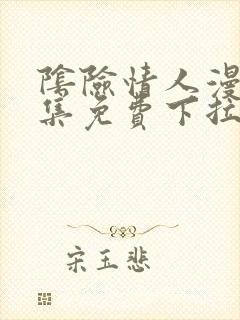 陰險情人漫
集免費下拉
宋玉悲